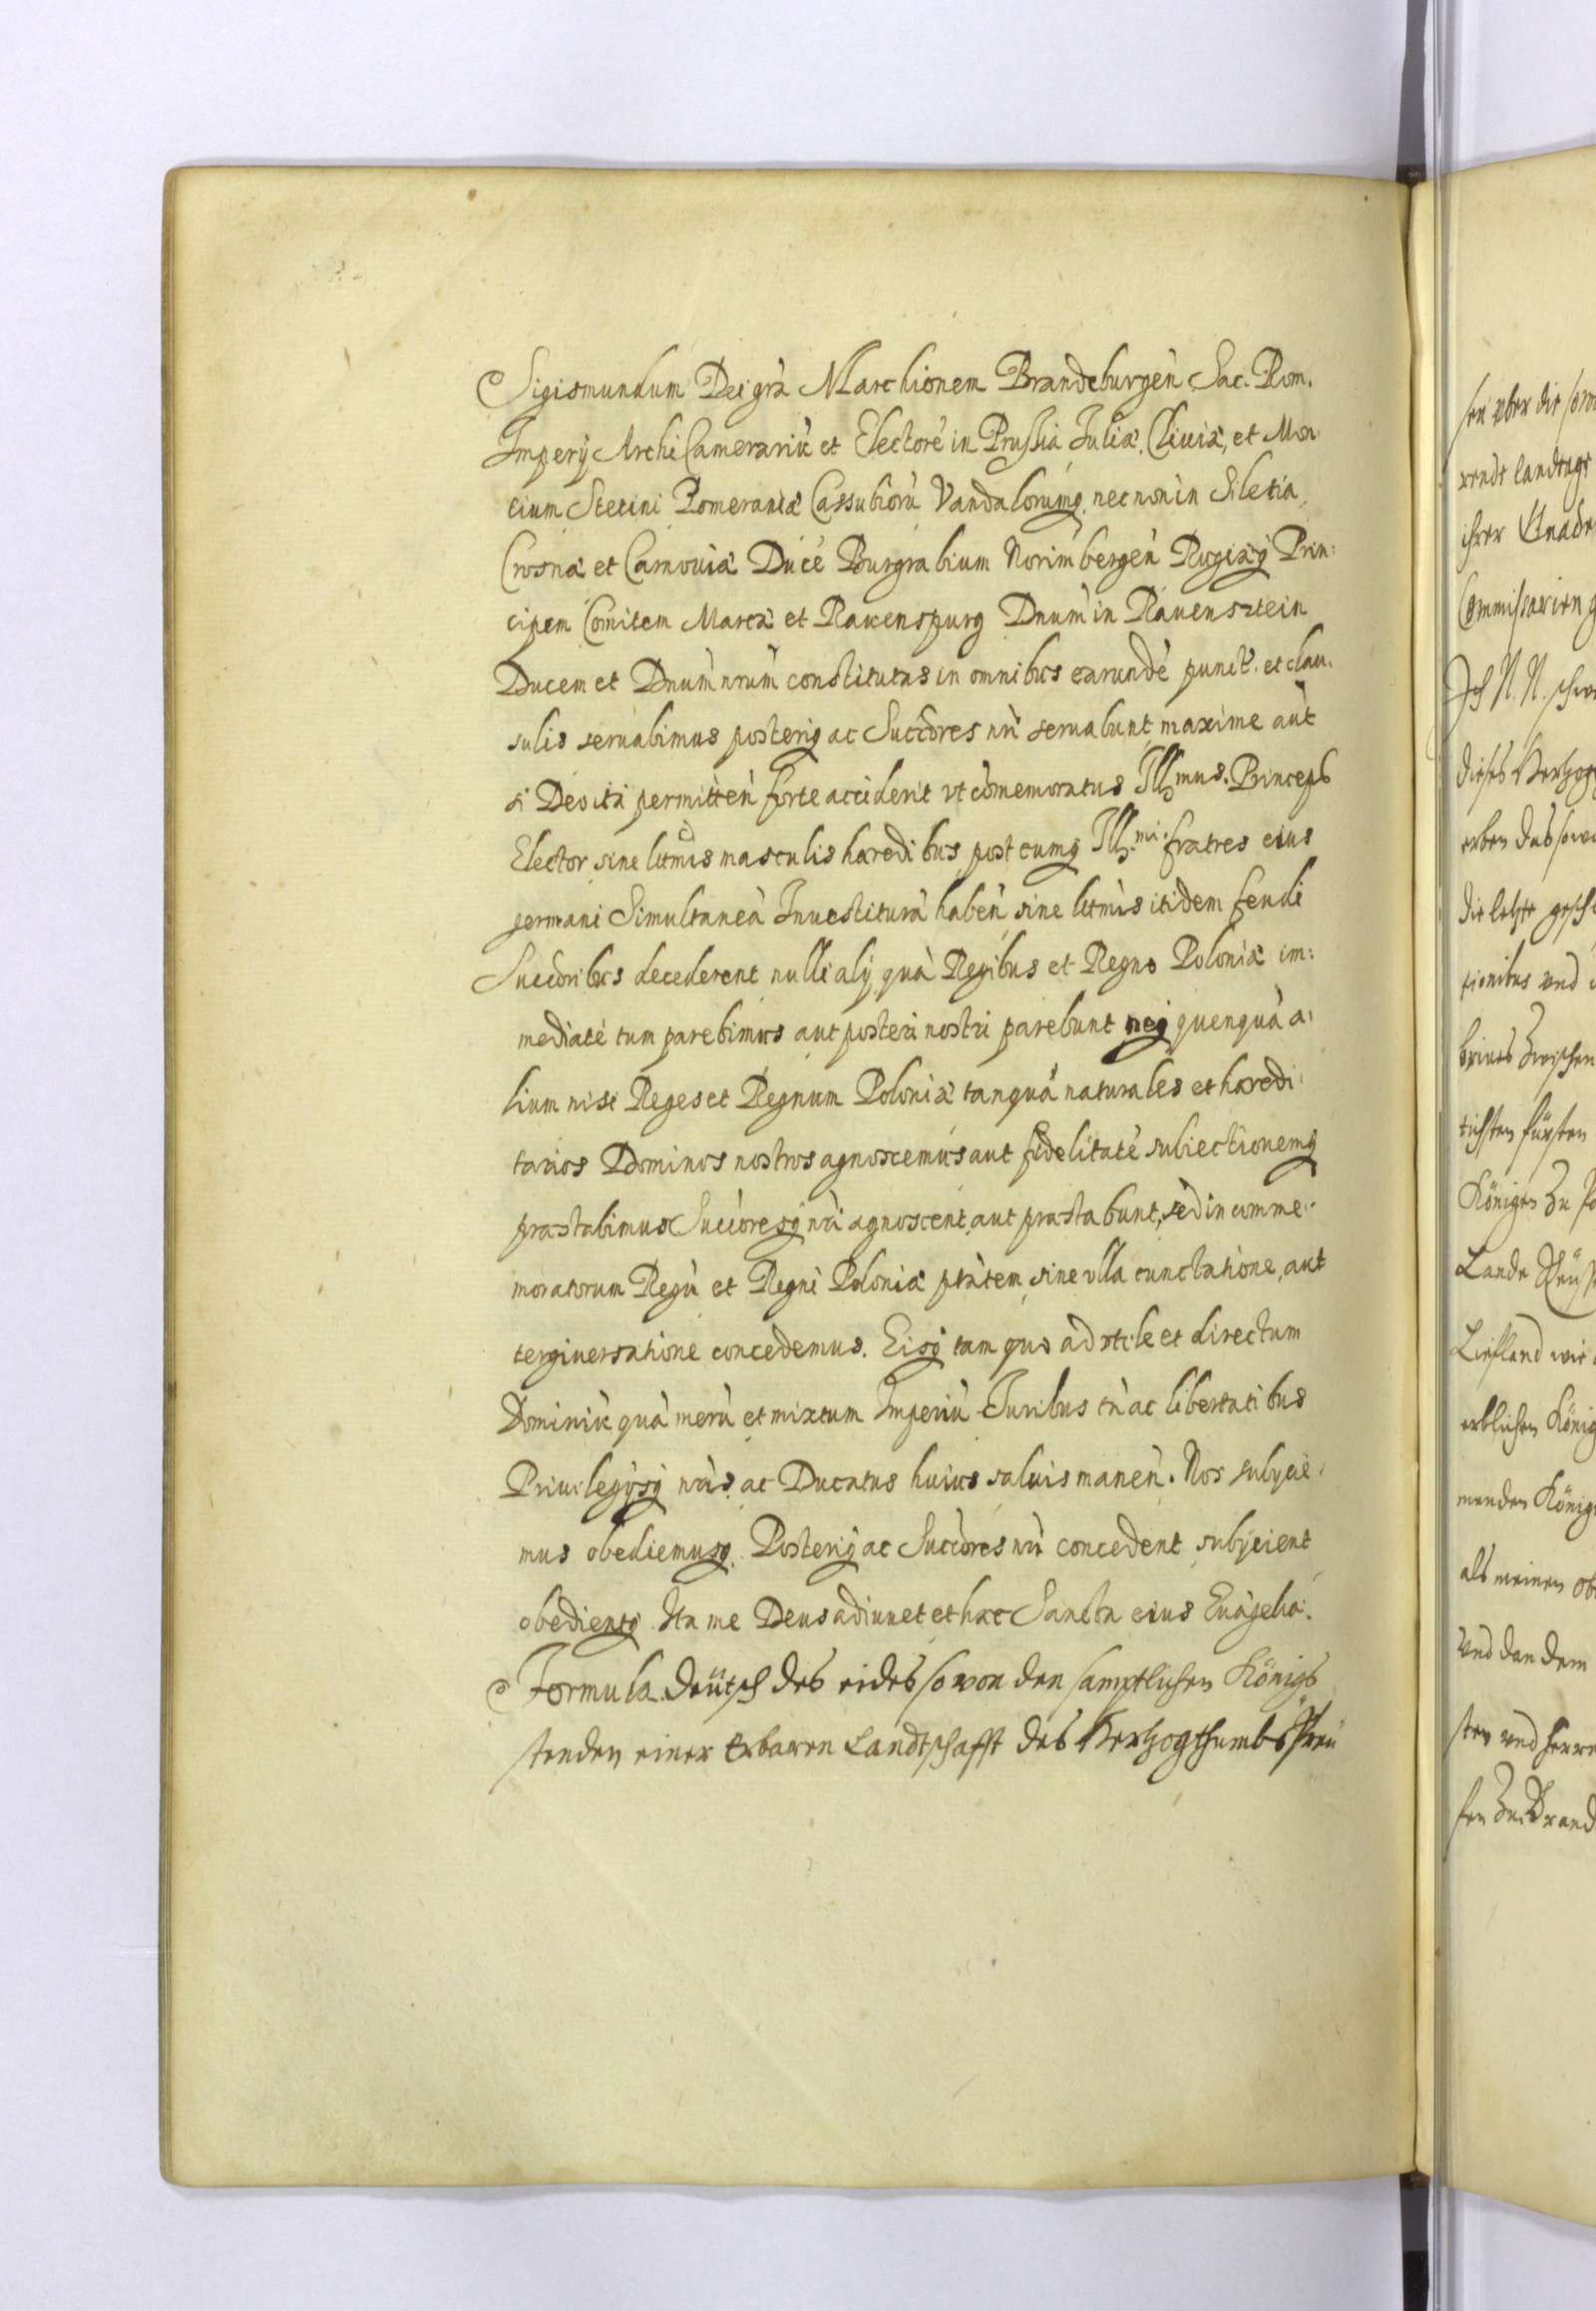 Sigismundum Dei grà Marchionem Brandeburgen̄ Sac. Rom.
Imperÿ Archi Camerariū et Electorē in Prussia Iuliæ, Cliuiæ, et Mon
tium Stetini Pomeraniæ Cassubiorū Vandalorumq. nec non in Silesia
Crosnæ et Carnouiæ Ducē Burgrabium Norimbergen̄ Rugiæq Prin:
cipem Comitem Marcæ et Rauenspurg Dnum in Rauensztein
Ducem et Dnum nrum constitutas in omnibus earundē punct. et clau.
sulis seruabimus posteriq ac Succores nri seruabunt maxime aūt
si Deo ità permitten̄ forte acciderit vt cōmemoratus Illmus. Princeps
Elector sine ltmis masculis hæredibus, post eumq Ill.mi. fratres eius
germani Simultaneā Inuestiturā haben̄ sine ltmis itidem feudi
Succoribus decederent nulli alÿ quā Regibus et Regno Poloniæ im:
mediatè tum parebimus aut posteri nostri parebunt neq quenquā a:
lium nisi Reges et Regnum Poloniæ tanquā naturales et hæredi:
tarios Dominos nostros agnoscemus aut fidelitatē subiectionemq
præstabimus Succoresq nri agnoscent, aut præstabunt, sed in comme:
moratorum Regū et Regni Poloniæ ptātem, sine vlla cunctatione, aut
tergiuersatione concedemus. Eisq tam quo ad vtile et directum
Dominiū quā merū et mixtum Imperiū Iuribus tn̄ ac libertatibus
Priuilegÿsq nris ac Ducatus huius saluis manen̄. Nos subÿcie:
mus obediemusq. Posteriq ac Succores nri concedent subÿcient
obedientq. Ita me Deus adiuuet et hæc Sancta eius Euāgelia.
Formula deütsch des eides so von den samptlichen Königs
stenden einer Erbaren Landtschafft des Hertzogthumbs Preü
sen vber die
rende landtage
ihrer Gnade
Commissarien
Ich N. N.
dieses Hertzog
erben das
die letzte
tionibus vnd
Zwischen
fürsten
Königes Zu
Lande
Liefland wie
erblichen König
menden König
als meinen
Vnd dan dem
sten vnd herrn
sen Zu Brand